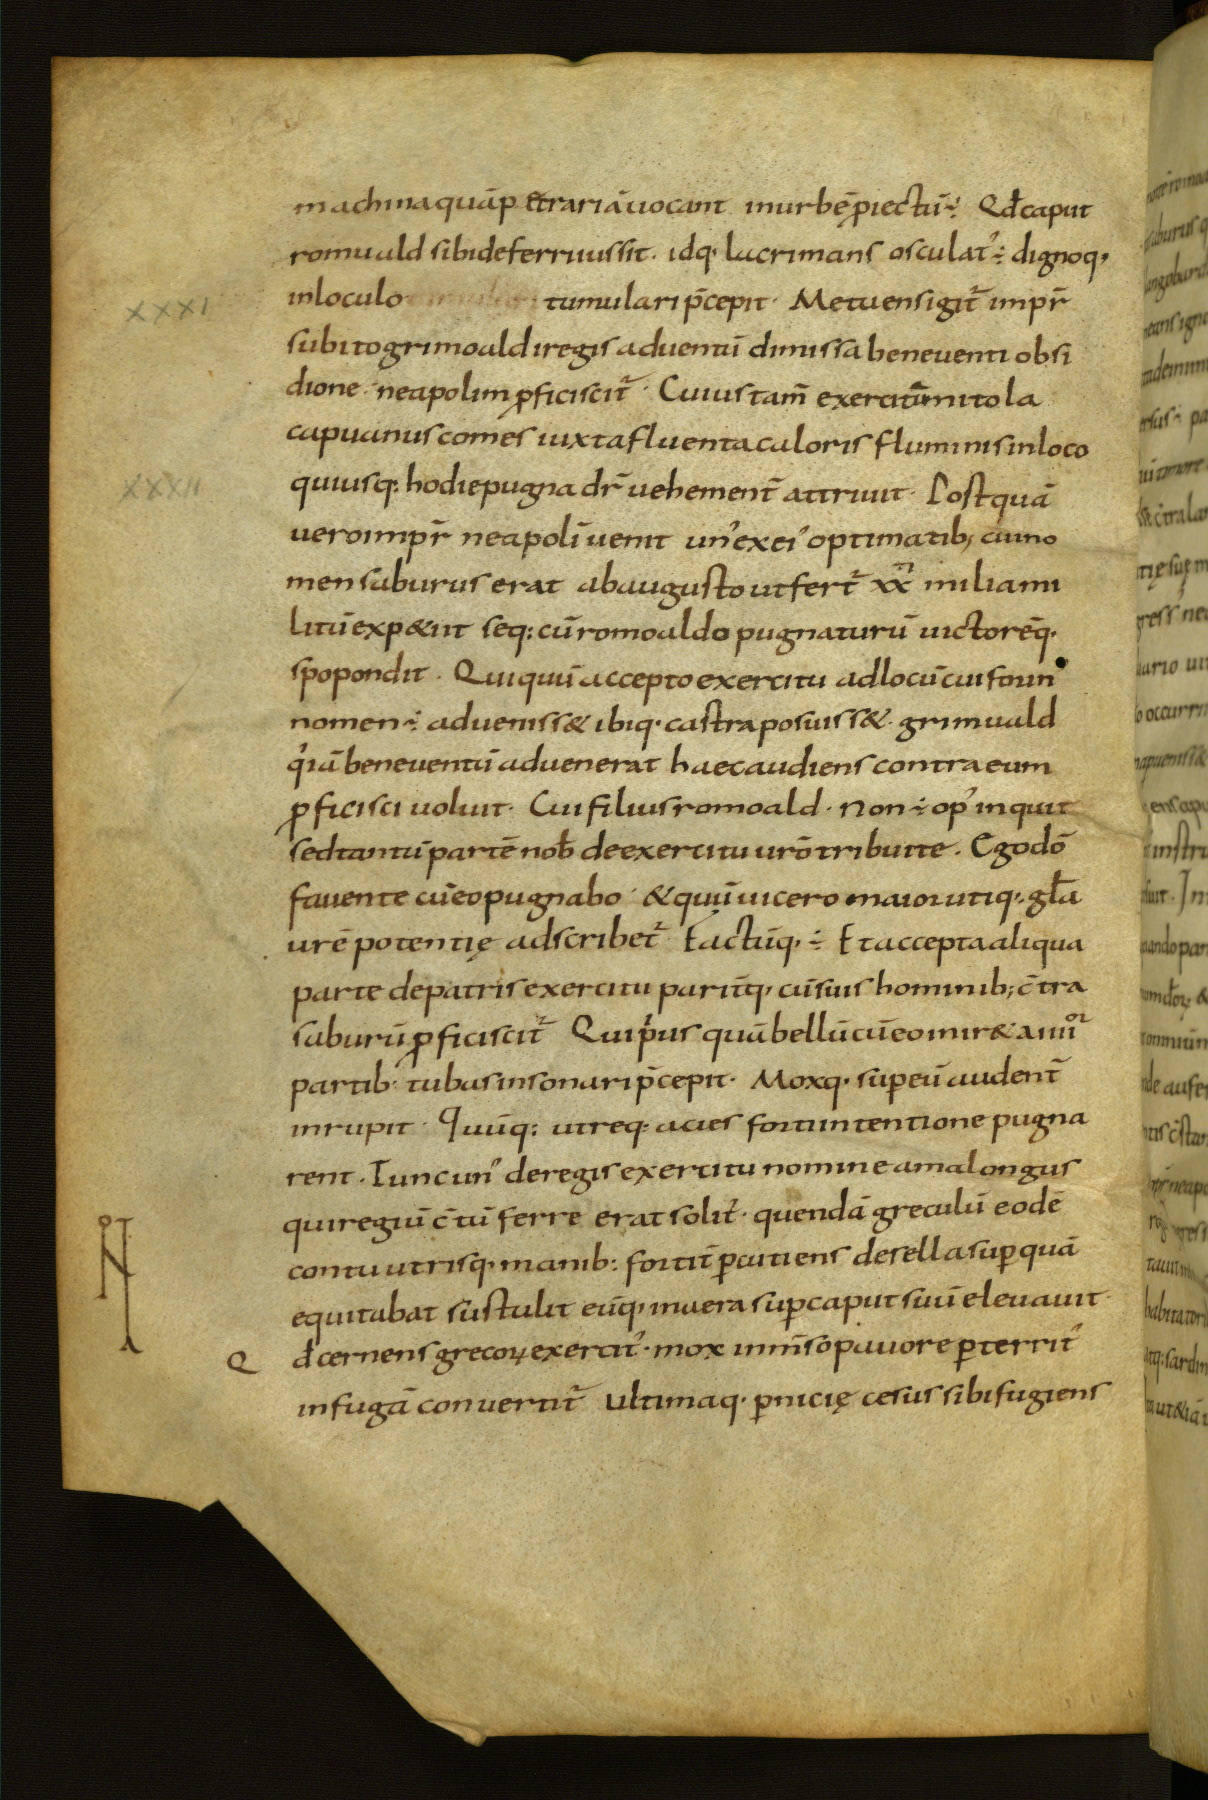 machina quā petrariā uocant in urbē ꝓiectū ÷ Qđ caput
romuald sibi deferri iussit · idq· lacrimans osculat᾽ ÷ dignoq·
XXXI in loculo tumulari p̄cepit · Metuens igit᷑ impr̄
subito grimoaldi regis aduentū dimissa beneuenti obsi
dione · neapolim ꝓficiscit᷑ · Cuius tam̄ exercitū mitola
capuanus comes iuxta fluenta caloris fluminis in loco
XXXII qui usq: hodie pugna dr̄ uehement̄ attriuit · Postquā
uero impr̄ neapolī uenit un᾽ ex ei᾽ optimatib; cui no
men saburus erat ab augusto ut fert᷑ xx milia mi
litū exp&iit seq: cū romoaldo pugnaturū uictorēq·
spopondit · Qui quū accepto exercitu ad locū cui forin᾽
nomen ÷ adueniss& ibiq· castra posuiss& · grimuald
q᾽ iā beneuentū aduenerat haec audiens contra eum
ꝓficisci uoluit · Cui filius romoald · Non ÷ op᾽ inquit
sed tantū partē nob̄ de exercitu urō tribuite · Ego dō
fauente cū eo pugnabo · & quū uicero maior utiq· gła
urē potentię adscribet᷑ · Factūq· ÷ Et accepta aliqua
parte de patris exercitu parit̄q· cū suis hominib; c̄tra
saburū ꝓficiscit᷑ Qui p᾽us quā bellū cū eo inir& a iiii᷑ᵒʳ
partib· tubas insonari p̄cepit · Moxq· sup eū audent̄
inrupit · Quūq: utreq· acies forti intentione pugna
rent · Tunc un᾽ de regis exercitu nomine amalongus
qui regiū c̄tū ferre erat solit᾽ · quendā greculū eodē
contu utrisq· manib: fortit̄ ꝑcutiens de sella sup quā
equitabat sustulit eūq· in aera sup caput suū eleuauit ·
Q đ cernens grecoꝝ exercit᾽ · mox inm̄so pauore ꝑterrit᾽
in fugā conuertit᷑ ultimaq· ꝑnicię cesus sibi fugiens